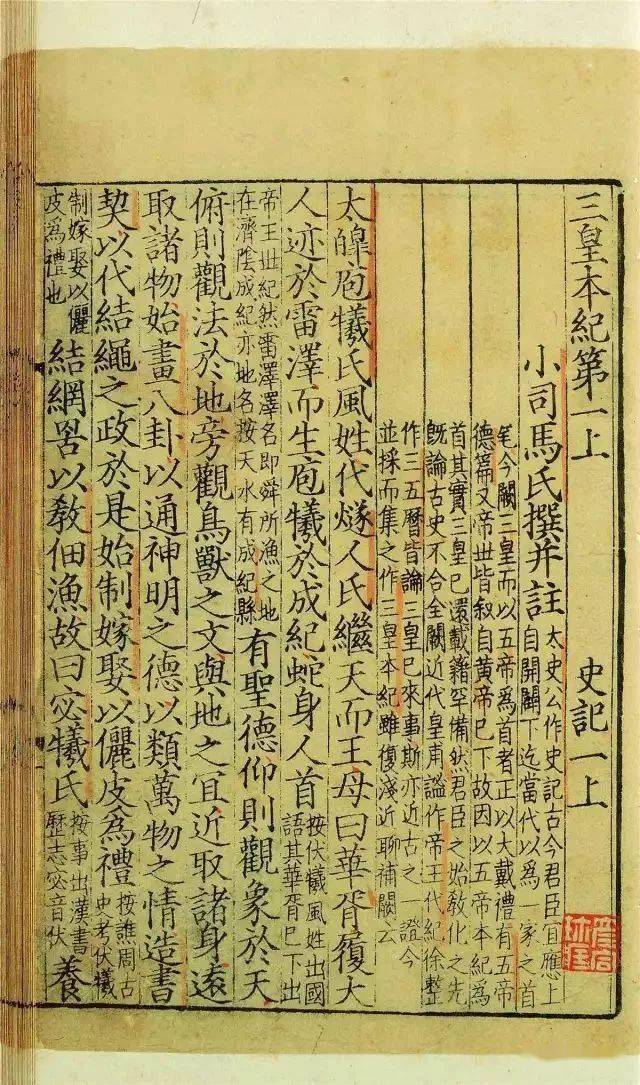 三皇本紀第一上　史記一上
小司馬氏撰并註
太史公作史記古今君臣宜應上
自開闢下迄當代以為一家之首
今闕三皇而以五帝為首者正以大戴禮有五帝
德篇又帝世皆叙自黄帝已下故因以五帝本紀為
首其實三皇已還載籍罕備然君臣之始敎化之先
旣論古史不合全闕近代皇甫謐作帝王代紀徐整
作三五曆皆論三皇已來事斯亦近古之一證今
並採而集之作三皇本紀雖復淺近聊補闕云
太皥庖犧氏風姓代燧人氏繼天而王母曰華胥履大
人迹於雷澤而生庖犧於成紀蛇身人首
按伏犧風姓出國
語其華胥已下出
帝王世紀然雷澤澤名即舜所漁之地
在濟陰成紀亦地名按天水有成紀縣
有聖德仰則觀象於天
俯則觀法於地旁觀鳥獸之文與地之宜近取諸身遠
取諸物始畫八卦以通神明之德以類萬物之情造書
契以代結繩之政於是始制嫁娶以儷皮為禮
按譙周古
史考伏犧
制嫁娶以儷
皮為禮也
結網罟以敎佃漁故曰宓犧氏
按事出漢書
歷志宓音伏
養